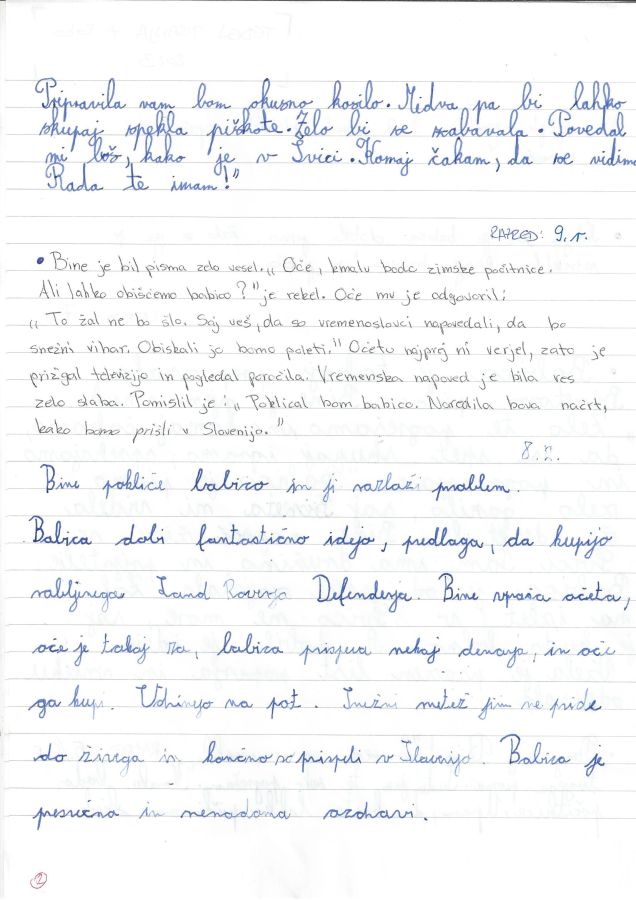 Pripravila vam bom okusno kosilo. Midva pa bi lahko
skupaj spekla piškote. Zelo bi se zabavala. Povedal
mi boš, kako je v Švici. Komaj čakam, da se vidimo
Rada te imam!"
RAZRED: 9.r.
• Bine je bil pisma zelo vesel. „Oče, kmalu bodo zimske počitnice.
Ali lahko obiščemo babico?" je rekel. Oče mu je odgovoril:
„To žal ne bo šlo. Saj veš, da so vremenoslovci napovedali, da bo
snežni vihar. Obiskali jo bomo poleti." Očetu najprej ni verjel, zato je
prižgal televizijo in pogledal poročila. Vremenska napoved je bila res
zelo slaba. Pomislil je: „Poklical bom babico. Naredila bova načrt,
kako bomo prišli v Slovenijo."
8.r.
Bine pokliče babico in ji razlaži problem.
Babica dobi fantastično idejo, predlaga, da kupijo
rabljenega Land Roverja Defenderja. Bine vpraša očeta,
oče je takoj za, babica prispeva nekaj denarja, in oče
ga kupi. Vdrinejo na pot. Snežni metež jim ne pride
do živega in končno so prispeli v Slovenijo. Babica je
presrečna in nenadana ozdravi.
2